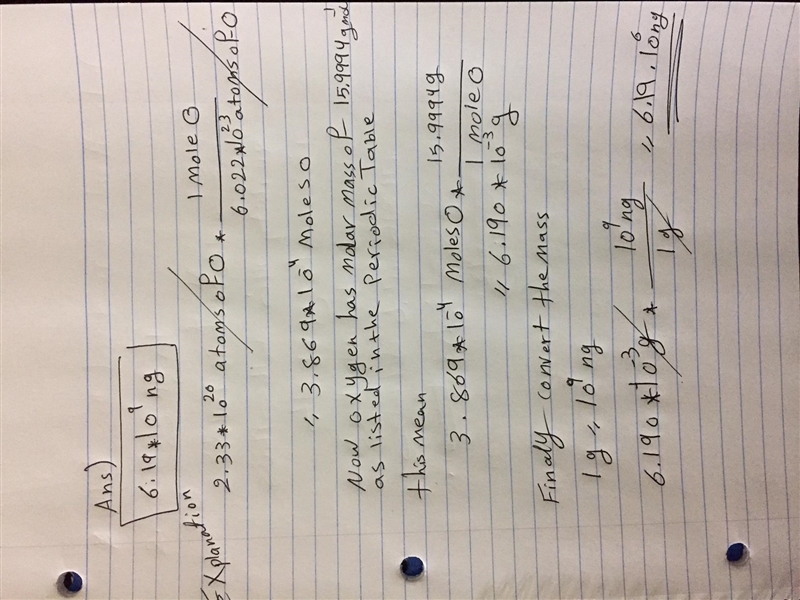 Ans)
6.19*10^9 ng
Explanation
2.33*10^20 atoms of O * 1 mole O / 6.022*10^23 atoms of O
= 3.869*10^-4 moles O
Now oxygen has molar mass of 15.9994 g mol^-1
as listed in the periodic Table
this mean
3.869*10^-4 Moles O * 15.9994g / 1 mole O
= 6.190*10^-3 g
Finaly convert the mass
1g = 10^9 ng
6.190*10^-3 g * 10^9 ng / 1g = 6.19.10^6 ng